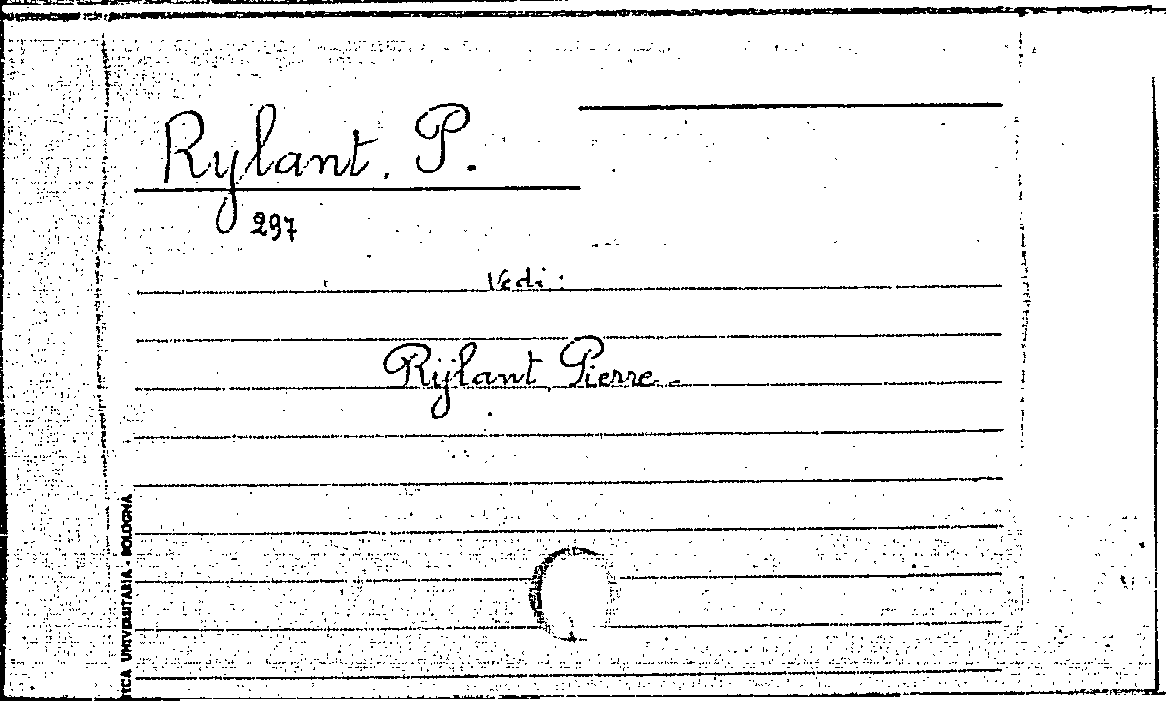 Rylant, P.
297
Vedi:
Rijlant Pierre.
TECA UNIVERSITARIA - BOLOGNA